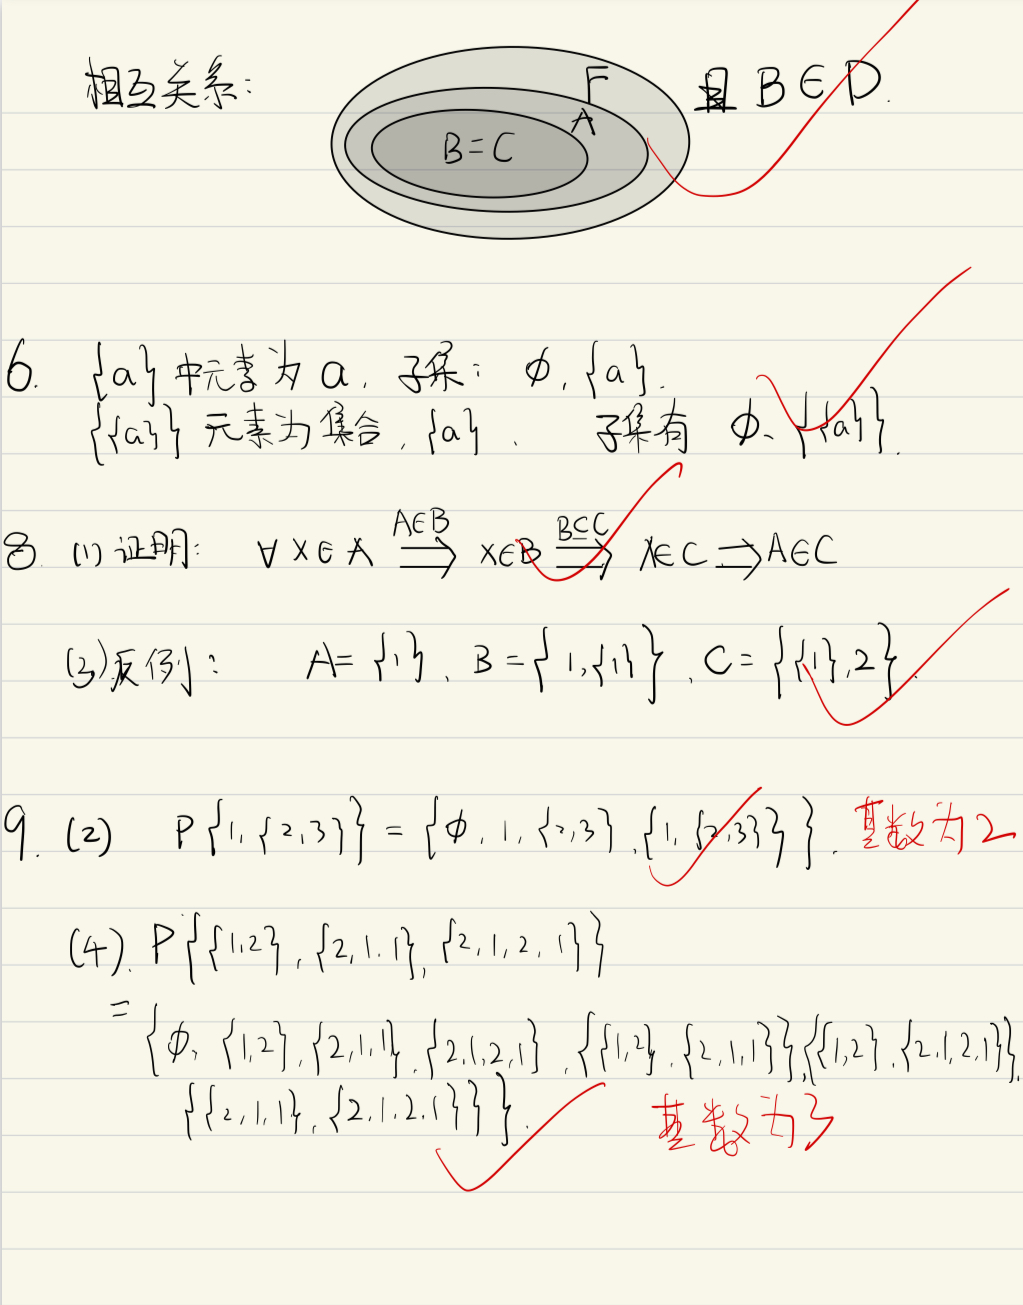 相互关系: F A B=C 且 B∈D.
6. {a}中元素为a. 子集: φ, {a}.
{{a}} 元素为集合, {a}. 子集有 φ、{{a}}.
8. (1) 证明: ∀x∈A ⟹(A∈B) x∈B ⟹(B⊆C) x∈C ⟹ A∈C
(3) 反例: A={1}, B={1,{1}}, C={{1},2}.
9. (2) P{1,{2,3}} = {φ, 1, {2,3}, {1,{2,3}}}. 基数为2
(4). P{{1,2}, {2,1,1}, {2,1,2,1}}
=
{φ, {1,2}, {2,1,1}, {2,1,2,1}, {{1,2}, {2,1,1}}, {{1,2}, {2,1,2,1}},
{{2,1,1}, {2,1,2,1}}}.
基数为3